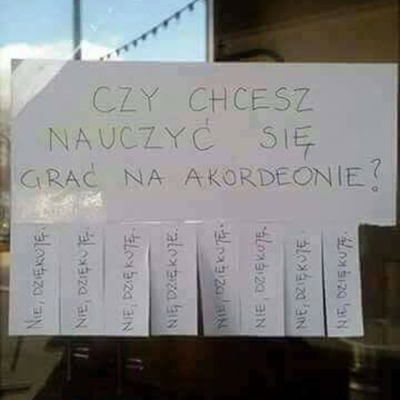 CZY CHCESZ
NAUCZYĆ SIĘ
GRAĆ NA AKORDEONIE?
NIE, DZIĘKUJĘ.
NIE, DZIĘKUJĘ.
NIE, DZIĘKUJĘ.
NIE, DZIĘKUJĘ.
NIE, DZIĘKUJĘ.
NIE, DZIĘKUJĘ.
NIE, DZIĘKUJĘ.
NIE, DZIĘKUJĘ.